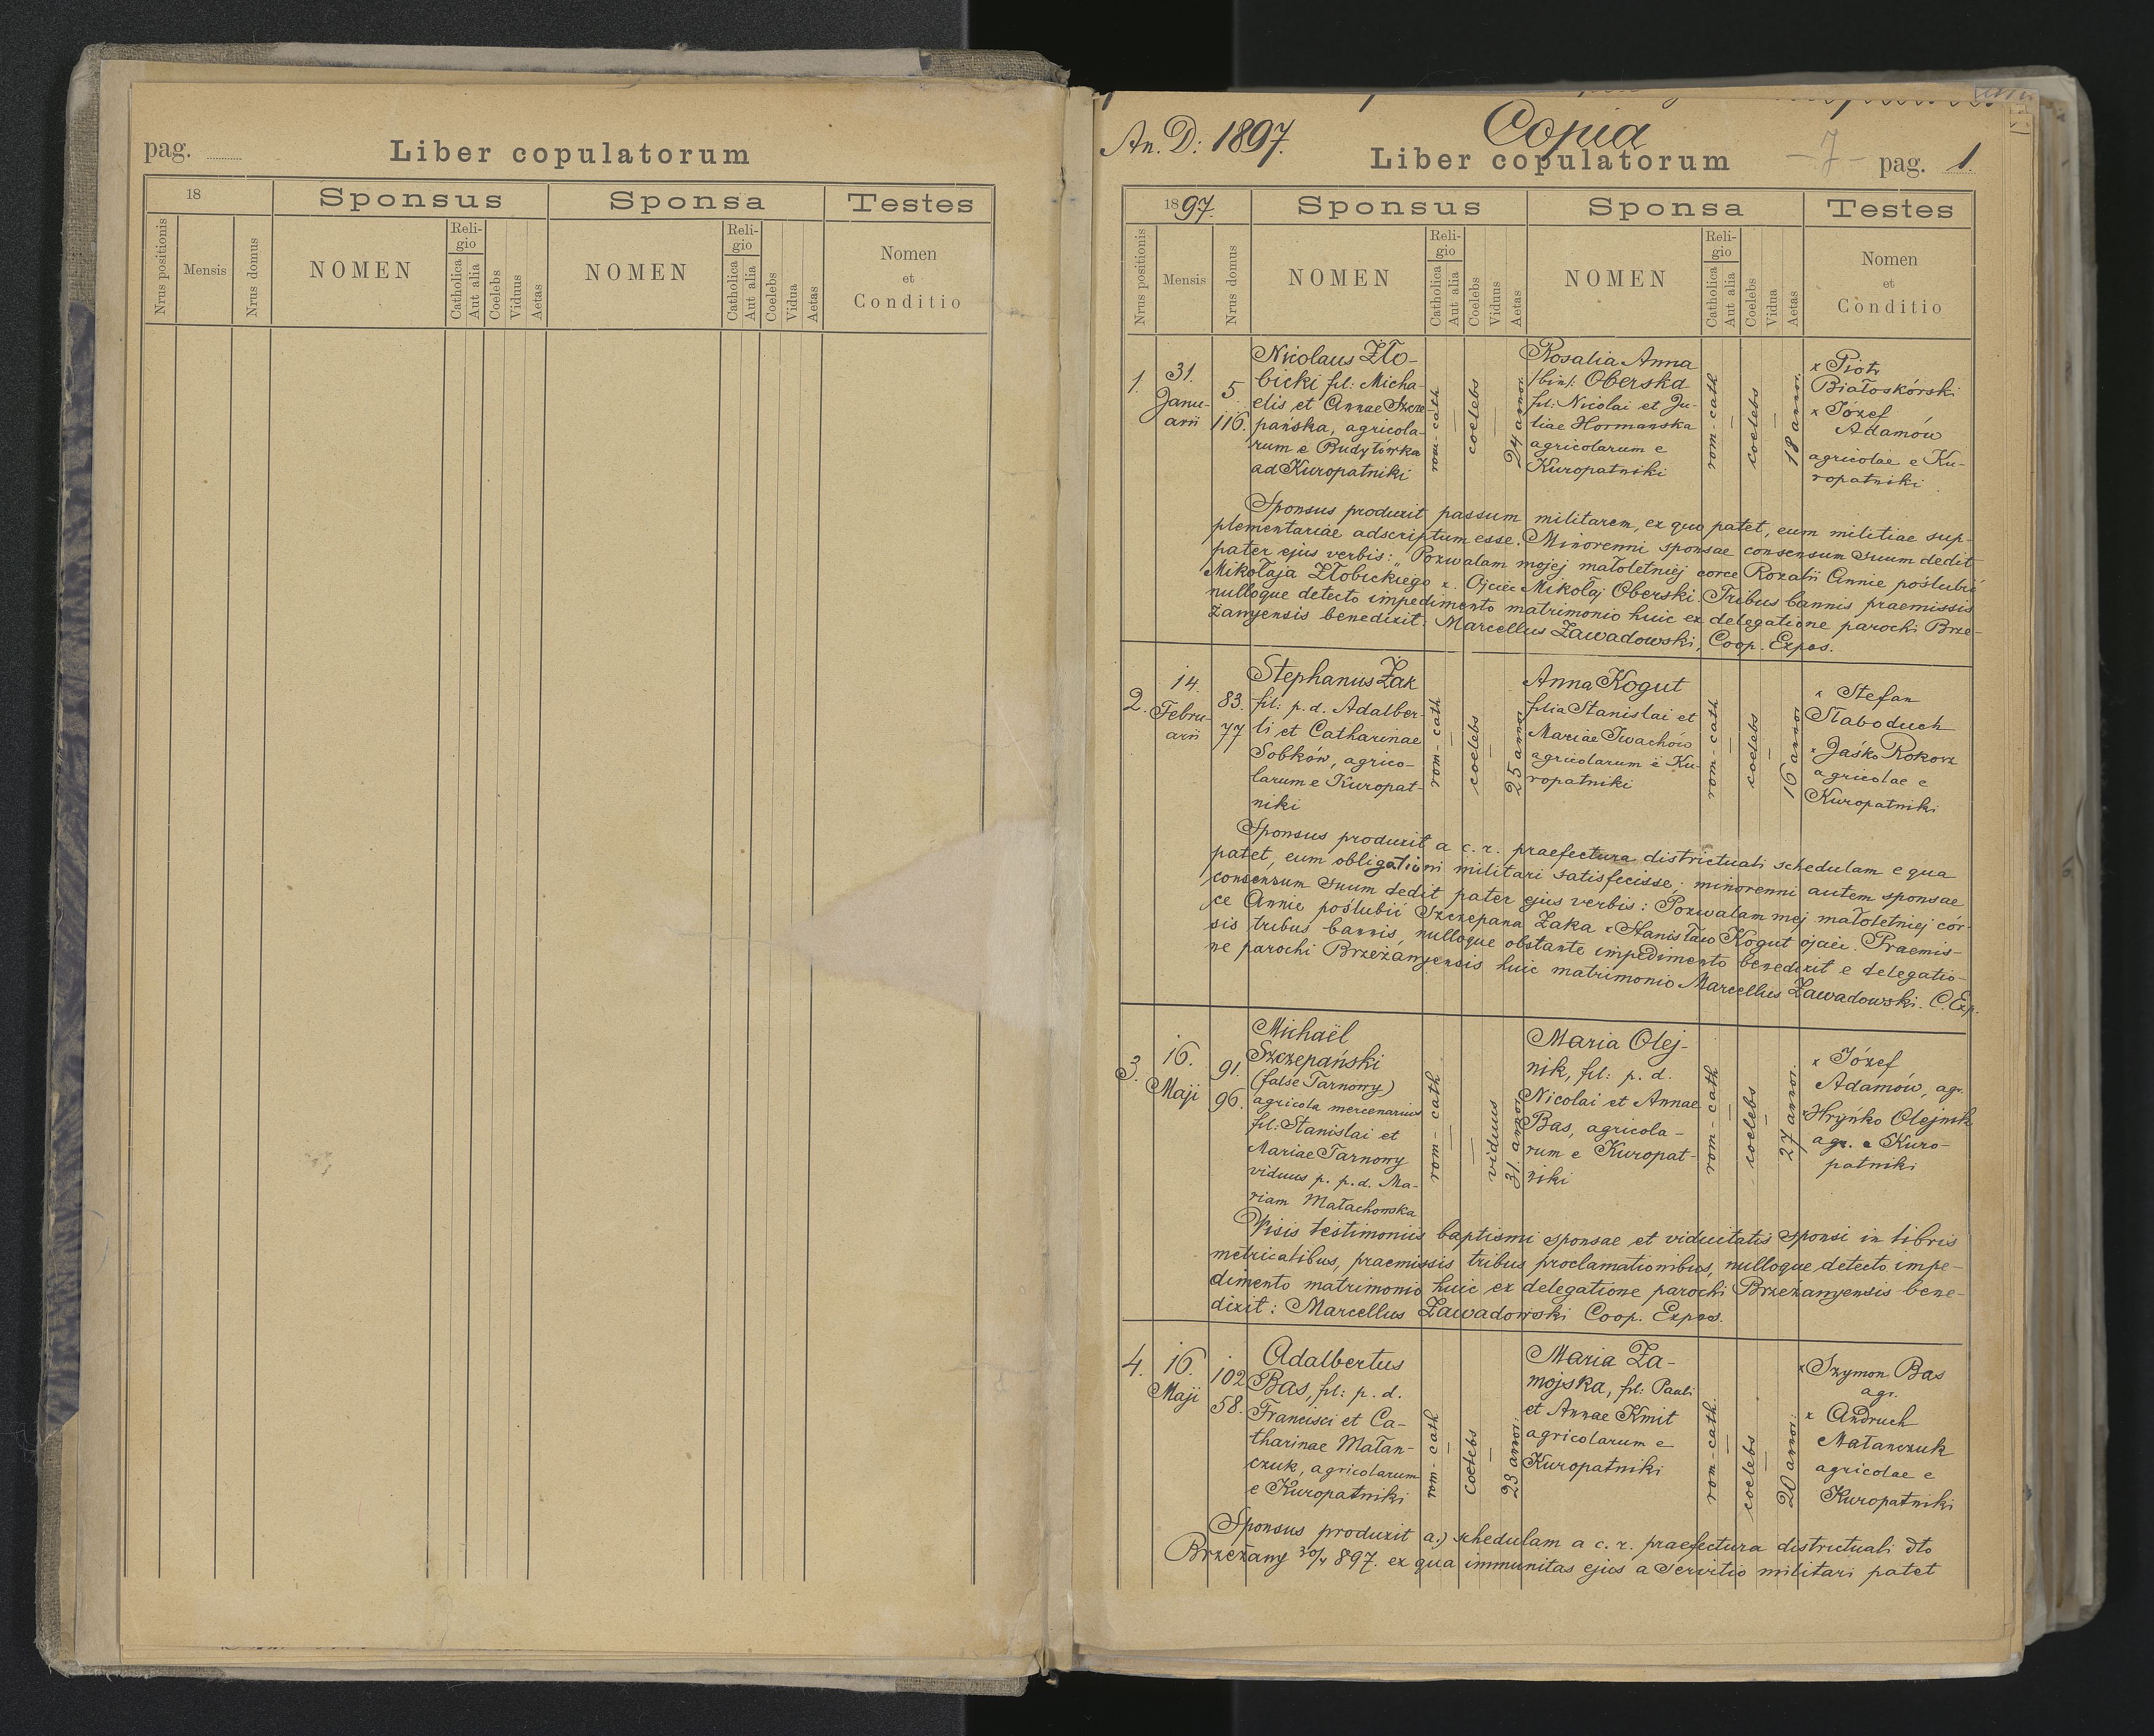 pag.
Liber copulatorum
18
Sponsus
Sponsa
Testes
Nrus positionis
Mensis
Nrus domus
NOMEN
Reli-
gio
Catholica
Aut alia
Coelebs
Viduus
Aetas
NOMEN
Reli-
gio
Catholica
Aut alia
Coelebs
Vidua
Aetas
Nomen
et
Conditio
An. D: 1897.
Copia
Liber copulatorum
- 7 -
pag. 1.
1897.
Sponsus
Sponsa
Testes
Nrus positionis
Mensis
Nrus domus
NOMEN
Reli-
gio
Catholica
Aut alia
Coelebs
Viduus
Aetas
NOMEN
Reli-
gio
Catholica
Aut alia
Coelebs
Vidua
Aetas
Nomen
et
Conditio
1.
31.
Janu-
arii
5.
116.
Nicolaus Zło-
bicki fil: Micha-
elis et Annae Szcze-
pańska, agricola-
rum e Budyłówka
ad Kuropatniki
rom-cath
coelebs
24 annor.
Rosalia Anna
/bin/: Oberska
fil: Nicolai et Ju-
liae Hormanska
agricolarum e
Kuropatniki
rom-cath
coelebs
18 annor.
x Piotr
Białoskórski
x Józef
Adamów
agricolae e Ku-
ropatniki
Sponsus produxit passum militarem, ex quo patet, eum militiae sup-
plementariae adscriptum esse. Minorenni sponsae consensum suum dedit
pater ejus verbis: "Pozwalam mojej małoletniej corce Rozalii Annie poślubić
Mikołaja Złobickiego x. Ojciec Mikołaj Oberski. Tribus bannis praemissis
nulloque detecto impedimento matrimonio huic ex delegatione parochi Brze-
zanyensis benedixit: Marcellus Zawadowski, Coop. Expos.
2.
14.
Febru-
arii
83.
77
Stephanus Żak
fil: p. d. Adalber-
ti et Catharinae
Sobków, agrico-
larum e Kuropat-
niki
rom-cath
coelebs
25 annor
Anna Kogut
filia Stanislai et
Mariae Iwachów
agricolarum e Ku-
ropatniki
rom-cath
coelebs
16 annor
x Stefan
Słaboduch
x Jaśko Rokosz
agricolae e
Kuropatniki
Sponsus produxit a c. r. praefectura districtuali schedulam e qua
patet, eum obligationi militari satisfecisse; minorenni autem sponsae
consensum suum dedit pater ejus verbis: Pozwalam mej małoletniej cór-
ce Annie poślubić Szczepana Żaka x Stanisław Kogut ojciec. Praemis-
sis tribus bannis, nulloque obstante impedimento benedixit e delegatio-
ne parochi Brzeżanyensis huic matrimonio Marcellus Zawadowski. C. Exp.
3.
16.
Maji
91.
96.
Michaël
Szczepański
(false Tarnowy)
agricola mercenarius
fil: Stanislai et
Mariae Tarnowy
viduus p. p. d. Ma-
riam Małachowska
rom-cath
viduus
31. annor
Maria Olej-
nik, fil: p. d.
Nicolai et Annae
Bas, agricola-
rum e Kuropat-
niki
rom-cath
coelebs
27 annor.
x Józef
Adamów, agr.
x Hryńko Olejnik
agr. e Kuro-
patniki
Visis testimoniis baptismi sponsae et viduitatis sponsi in libris
metricalibus, praemissis tribus proclamationibus, nulloque detecto impe-
dimento matrimonio huic ex delegatione parochi Brzeżanyensis bene-
dixit: Marcellus Zawadowski Coop. Expos.
4.
16.
Maji
102
58.
Adalbertus
Bas, fil: p. d.
Francisci et Ca-
tharinae Małan-
czuk, agricolarum
e Kuropatniki
rom-cath
coelebs
23 annor.
Maria Za-
mojska, fil: Pauli
et Annae Kmit
agricolarum e
Kuropatniki
rom-cath.
coelebs
20 annor.
x Szymon Bas
agr.
x Andruch
Małanczuk
agricolae e
Kuropatniki
Sponsus produxit a.) schedulam a c. r. praefectura districtuali dto
Brzeżany 30/4 897. ex qua immunitas ejus a servitio militari patet